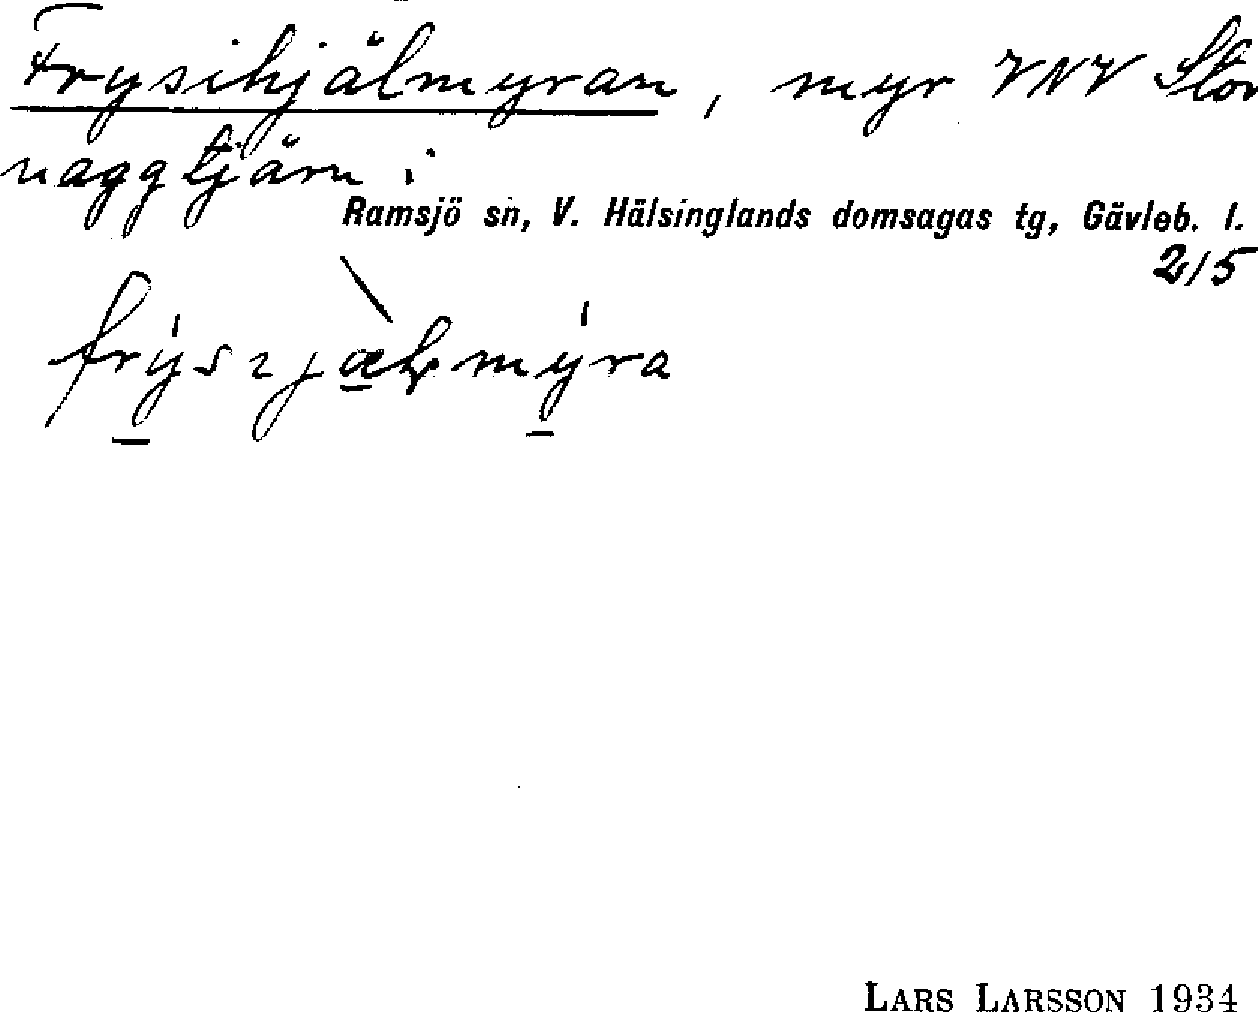 Frysihjälmyran, myr VNV Stor
naggtjärn i
Ramsjö sn, V. Hälsinglands domsagas tg, Gävleb. l.
2/5
LARS LARSSON 1934